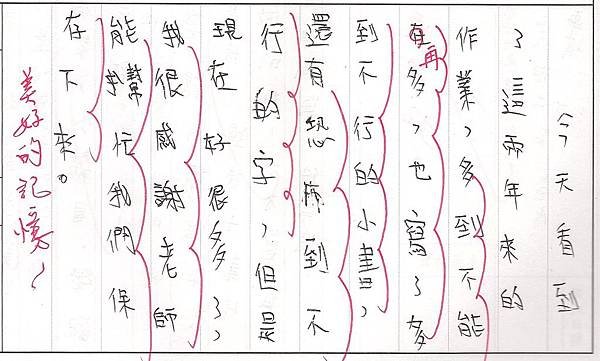 今天看到
了這兩年來的
作業，多到不能
再多，也寫了多
到不行的小書，
還有恐怖到不
行的字，但是
現在好很多了，
我很感謝老師
能幫忙我們保
存下來。
美好的記憶！